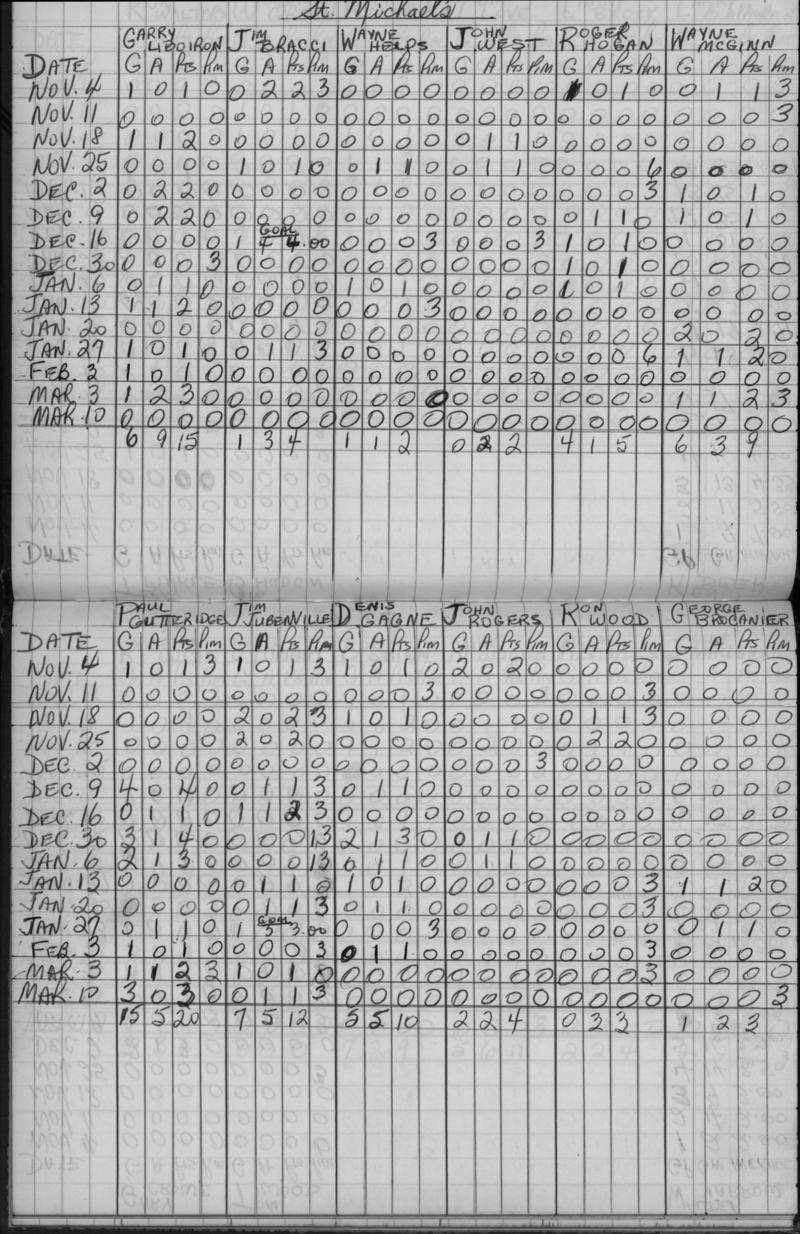 St. Michaels
GARRY LIBOIRON JIM BRACCI WAYNE HELPS JOHN WEST ROGER HOGAN WAYNE MCGINN
DATE G A Pts Pim G A Pts Pim G A Pts Pim G A Pts Pim G A Pts Pim G A Pts Pim
NOV. 4 1 0 1 0 0 2 2 3 0 0 0 0 0 0 0 0 1 0 1 0 0 1 1 3
NOV. 11 0 0 0 0 0 0 0 0 0 0 0 0 0 0 0 0 0 0 0 0 0 0 0 3
NOV. 18 1 1 2 0 0 0 0 0 0 0 0 0 0 1 1 0 0 0 0 0 0 0 0 0
NOV. 25 0 0 0 0 1 0 1 0 0 1 1 0 0 1 1 0 0 0 0 6 0 0 0 0
DEC. 2 0 2 2 0 0 0 0 0 0 0 0 0 0 0 0 0 0 0 0 3 1 0 1 0
DEC. 9 0 2 2 0 0 0 0 0 0 0 0 0 0 0 0 0 0 1 1 0 1 0 1 0
GOAL
DEC. 16 0 0 0 0 1 4 4.00 0 0 0 3 0 0 0 3 1 0 1 0 0 0 0 0
DEC. 30 0 0 0 3 0 0 0 0 0 0 0 0 0 0 0 0 1 0 1 0 0 0 0 0
JAN. 6 0 1 1 0 0 0 0 0 1 0 1 0 0 0 0 0 1 0 1 0 0 0 0 0
JAN. 13 1 1 2 0 0 0 0 0 0 0 0 3 0 0 0 0 0 0 0 0 0 0 0 0
JAN. 20 0 0 0 0 0 0 0 0 0 0 0 0 0 0 0 0 0 0 0 0 2 0 2 0
JAN. 27 1 0 1 0 0 1 1 3 0 0 0 0 0 0 0 0 0 0 0 6 1 1 2 0
FEB. 3 1 0 1 0 0 0 0 0 0 0 0 0 0 0 0 0 0 0 0 0 0 0 0 0
MAR. 3 1 2 3 0 0 0 0 0 0 0 0 0 0 0 0 0 0 0 0 0 1 1 2 3
MAR. 10 0 0 0 0 0 0 0 0 0 0 0 0 0 0 0 0 0 0 0 0 0 0 0 0
6 9 15 1 3 4 1 1 2 0 2 2 4 1 5 6 3 9
PAUL GUTTERIDGE JIM JUBENVILLE DENIS GAGNE JOHN ROGERS RON WOOD GEORGE BROGANIER
DATE G A Pts Pim G A Pts Pim G A Pts Pim G A Pts Pim G A Pts Pim G A Pts Pim
NOV. 4 1 0 1 3 1 0 1 3 1 0 1 0 2 0 2 0 0 0 0 0 0 0 0 0
NOV. 11 0 0 0 0 0 0 0 0 0 0 0 3 0 0 0 0 0 0 0 3 0 0 0 0
NOV. 18 0 0 0 0 2 0 2 3 1 0 1 0 0 0 0 0 0 1 1 3 0 0 0 0
NOV. 25 0 0 0 0 2 0 2 0 0 0 0 0 0 0 0 0 0 2 2 0 0 0 0 0
DEC. 2 0 0 0 0 0 0 0 0 0 0 0 0 0 0 0 3 0 0 0 0 0 0 0 0
DEC. 9 4 0 4 0 0 1 1 3 0 1 1 0 0 0 0 0 0 0 0 0 0 0 0 0
DEC. 16 0 1 1 0 1 1 2 3 0 0 0 0 0 0 0 0 0 0 0 0 0 0 0 0
DEC. 30 3 1 4 0 0 0 0 13 2 1 3 0 0 1 1 0 0 0 0 0 0 0 0 0
JAN. 6 2 1 3 0 0 0 0 13 0 1 1 0 0 1 1 0 0 0 0 0 0 0 0 0
JAN. 13 0 0 0 0 0 1 1 0 1 0 1 0 0 0 0 0 0 0 0 3 1 1 2 0
JAN. 20 0 0 0 0 0 1 1 3 0 1 1 0 0 0 0 0 0 0 0 3 0 0 0 0
GOAL
JAN. 27 0 1 1 0 1 3 3.00 0 0 0 3 0 0 0 0 0 0 0 0 0 1 1 0
FEB. 3 1 0 1 0 0 0 0 3 0 1 1 0 0 0 0 0 0 0 0 3 0 0 0 0
MAR. 3 1 1 2 3 1 0 1 0 0 0 0 0 0 0 0 0 0 0 0 3 0 0 0 0
MAR. 10 3 0 3 0 0 1 1 3 0 0 0 0 0 0 0 0 0 0 0 0 0 0 0 3
15 5 20 7 5 12 5 5 10 2 2 4 0 3 3 1 2 3